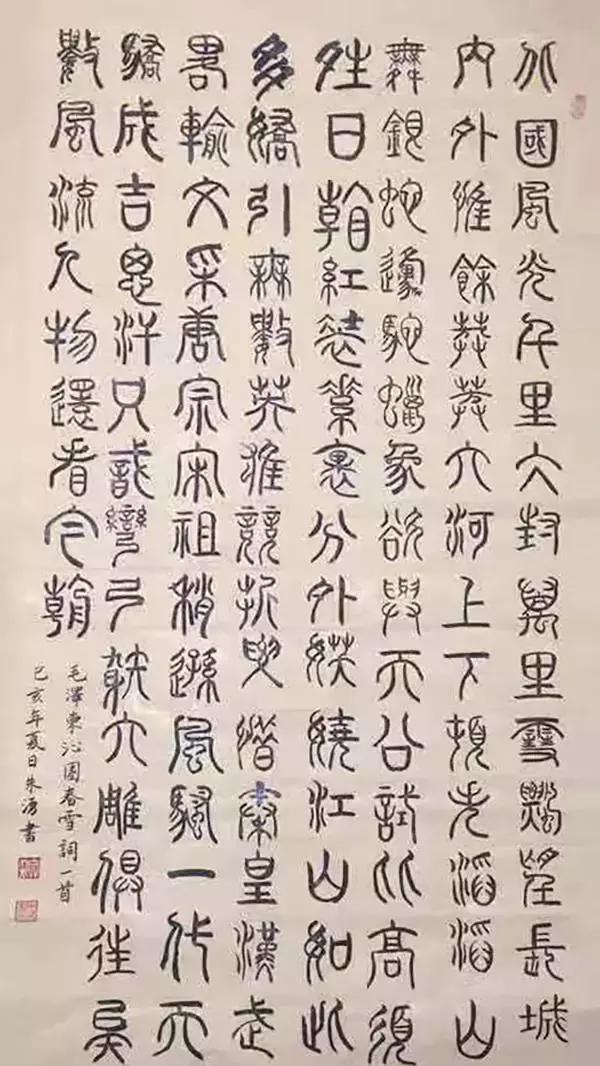 北國風光千里冰封萬里雪飄望長城
内外惟餘莽莽大河上下頓失滔滔山
舞銀蛇原馳蠟象欲與天公試比高須
晴日看紅裝素裹分外妖嬈江山如此
多嬌引無數英雄競折腰惜秦皇漢武
略輸文采唐宗宋祖稍遜風騷一代天
驕成吉思汗只識彎弓射大雕俱往矣
數風流人物還看今朝
毛澤東沁園春雪詞一首
己亥年夏日朱書